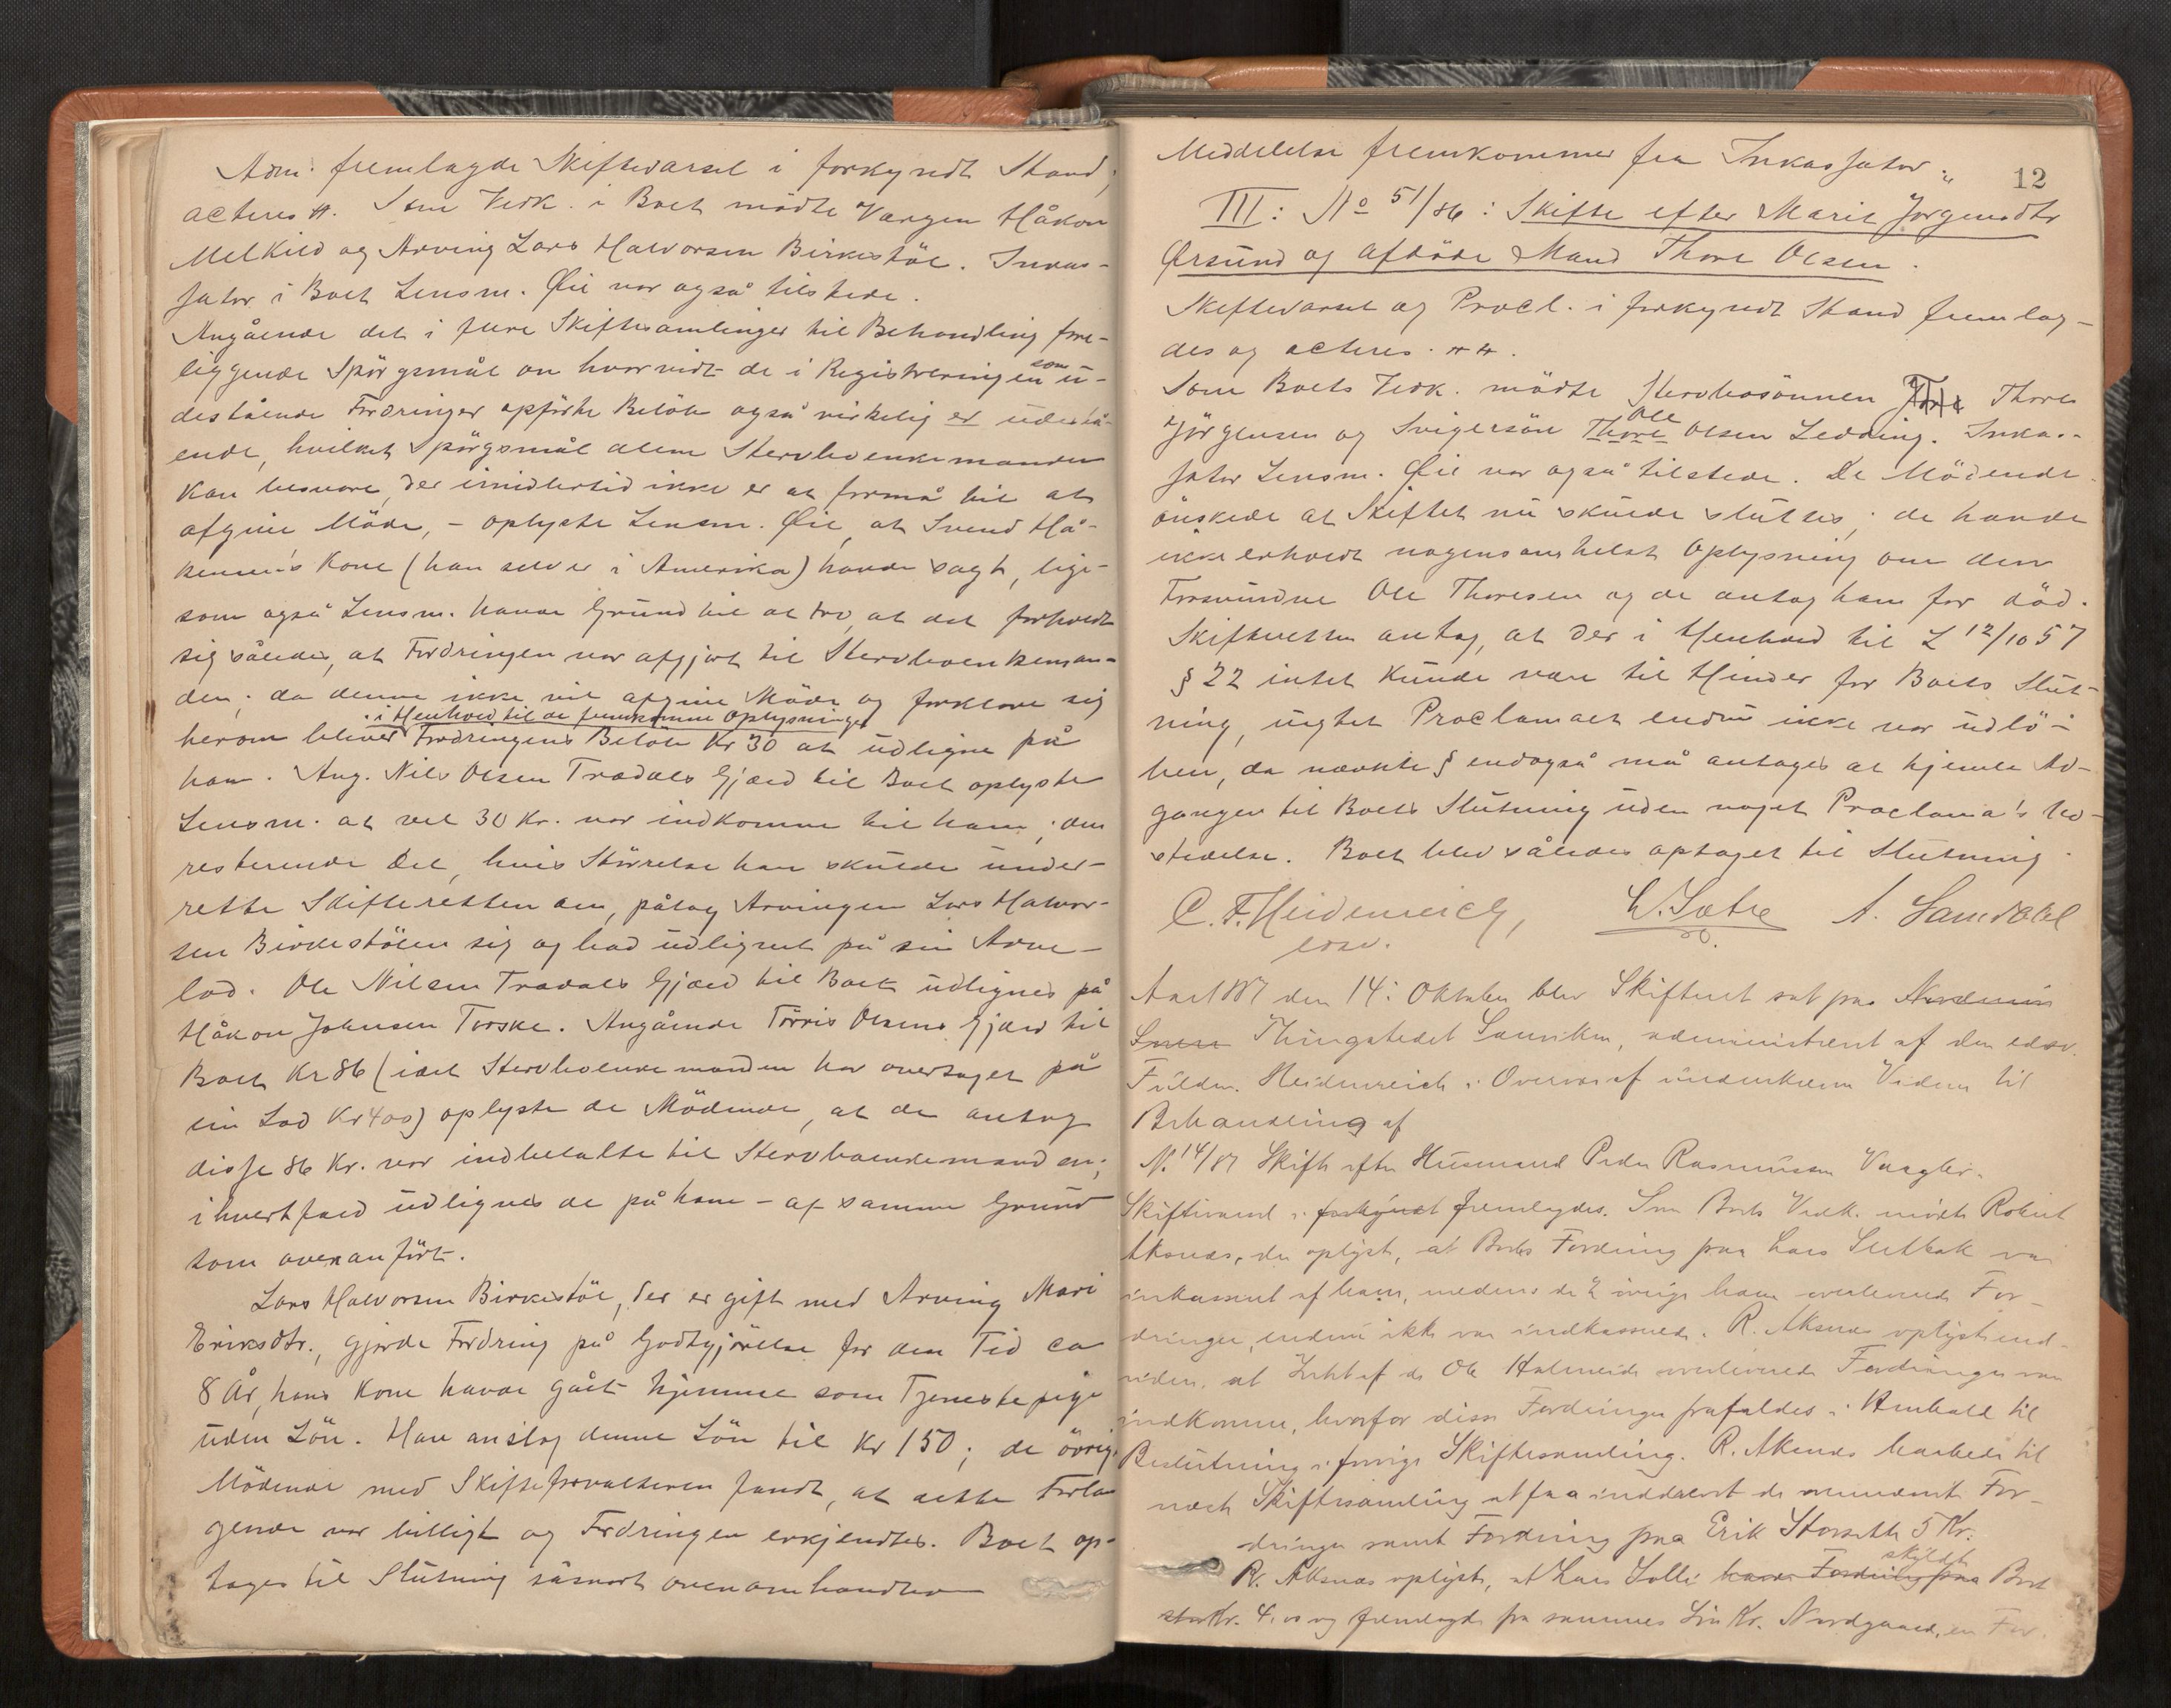 Adm. fremlagde Skiftevarsel i forkyndt Stand,
acteres #. Som Vedk. i Boet mödte Værgen Håkon
Melkild og Arving Lars Halvorsen Birkestöl. Inkas-
sator i Boet Lensm. Öie var også tilstede.
Angående det i flere Skiftesamlinger til Behandling fore-
liggende Spörgsmål om hvorvidt de i Registreringen som u-
destående Fordringer opförte Belöb også virkelig er udestå-
ende, hvilket Spörgsmål alene Stervboenkemanden
kan besvare, der imidlertid ikke er at formå til at
afgive Möde, - oplyste Lensm. Öie, at Svend Hå-
kensens Kone (han selv er i Amerika) havde sagt, lige-
som også Lensm. havde Grund til at tro, at det forholdt
sig således, at Fordringen var afgjort til Stervboenkeman-
den; da denne ikke vil afgive Möde og forklare sig
i Henhold til de fremkomne Oplysninger
herom bliver Fordringens Belöb Kr 30 at udligne på
ham. Ang. Nils Olsen Trædals Gjæld til Boet oplyste
Lensm. at vel 30 Kr. var indkomne til ham; den
resterende Del, hvis Störrelse han skulde under-
rette Skifteretten om, påtog Arvingen Lars Halvor-
sen Birkestölen sig og bad udlignet på sin Arve-
lod. Ole Nilsen Trædals Gjæld til Boet udlignes på
Håkon Johnsen Torske. Angående Törris Olsens Gjæld til
Boet Kr 86 (idet Stervboenkemanden har overtaget på
sin Lod Kr 400) oplyste de Mödende, at de antog
disse 86 Kr. var indbetalte til Stervboenkemanden;
i hvert fald udlignes de på ham - af samme Grund
som ovenanfört.
Lars Halvorsen Birkestöl, der er gift med Arving Mari
Eriksdtr., gjorde Fordring på Godtgjörelse for den Tid ca
8 År, hans Kone havde gået hjemme som Tjenestepige
uden Lön. Han anslog denne Lön til Kr 150; de övrige
Mödende med Skifteforvalteren fandt, at dette Forlan
gende var billigt og Fordringen erkjendtes. Boet op-
tages til Slutning såsnart ovenomhandlede
Meddelelse fremkommer fra Inkassator.
12
III: No 51/86: Skifte efter Marit Jörgensdtr
Örsund og afdöde Mand Thore Olsen.
Skiftevarsel og Procl. i forkyndt Stand fremlag-
des og acteres. ##.
Som Boets Vedk. mödte Stervbosönnen Thore
Jörgensen og Svigersön Thore Ole Olsen Ledding. Inkas-
sator Lensm. Öie var også tilstede. De Mödende
önskede at Skiftet nu skulde sluttes; de havde
ikke erholdt nogensomhelst Oplysning om den
Forsvundne Ole Thoresen og de antog ham for död.
Skifteretten antog, at der i Henhold til L 12/10 57
§ 22 intet kunde være til Hinder for Boets Slut-
ning, uagtet Proclamaet endnu ikke var udlö-
ben, da nævnte § endogså må antages at hjemle Ad-
gangen til Boets Slutning uden noget Proclama's Ud-
stedelse. Boet blev således optaget til Slutning.
C. F. Heidenreich, L. Sætre A. Landsdahl
edsv.
Aar 1887 den 14: Oktober blev Skifteret sat paa
Thingstedet Sanviken, administreret af den edsv.
Fuldm. Heidenreich i Overvær af underskrevne Vidner til
Behandling af
N. 14/87 Skifte efter Husmand Peder Rasmussen Vaagler.
Skiftevarsel i forkyndt fremlagdes. Som Boets Vedk. mödte Robert
Aksnæs, der oplyste, at Boets Fordring paa Lars Sletbak var
inkasseret af ham, medens de 2 övrige ham overleverede For-
dringer, endnu ikke var indkasserede. R. Aksnæs oplyste end-
viden, at Intet af de Ole Halmeide overleverede Fordringer var
indkomne, hvorfor disse Fordringer frafaldes i Henhold til
Beslutning i forrige Skiftesamling. R. Aksnæs lovede til
næste Skiftesamling at faa inddrevet de For-
dringer samt Fordring paa Erik Storsette 5 Kr.
R. Aksnæs oplyste, at Lars Solli havde Fordring paa skyldt Boet
Kr. 4.00 og fremlagde fra sammes Sön Kr. Nordgaard, en For-